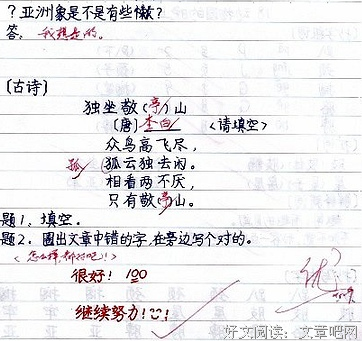 ？亚洲象是不是有些懒？
答：我想是的。
〔古诗〕
独坐敬(亭)山
〔唐〕李白 〈请填空〉
众鸟高飞尽，
孤 狐云独去闲。
相看两不厌，
只有敬亭山。
题1、填空。
题2、圈出文章中错的字,在旁边写个对的。
〈怎么样,都对吧!〉
很好! 100
优
继续努力!!
好文阅读：文章吧网